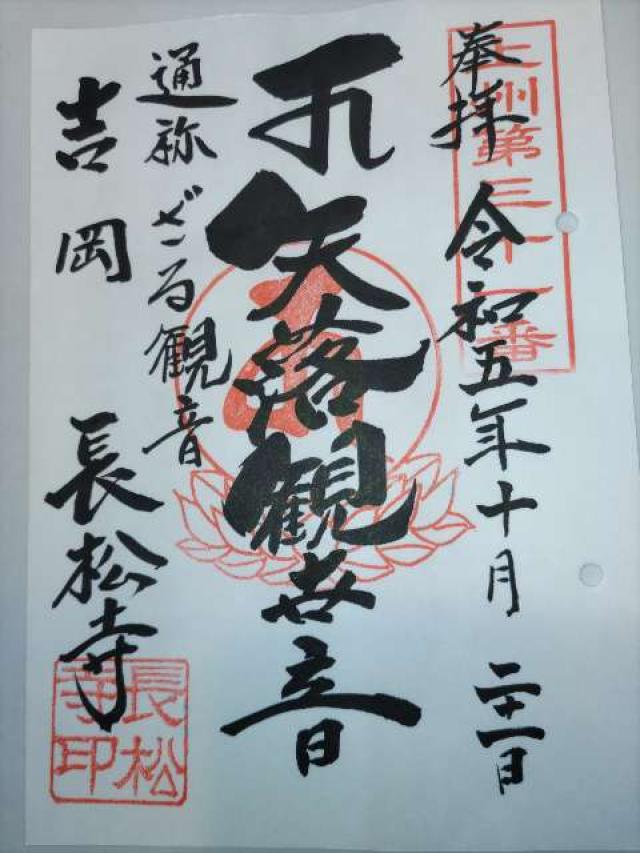 上州第三十一番
奉拝 令和五年十月二十一日
矢落観世音
通称ざる観音
吉岡 長松寺
長松
寺印